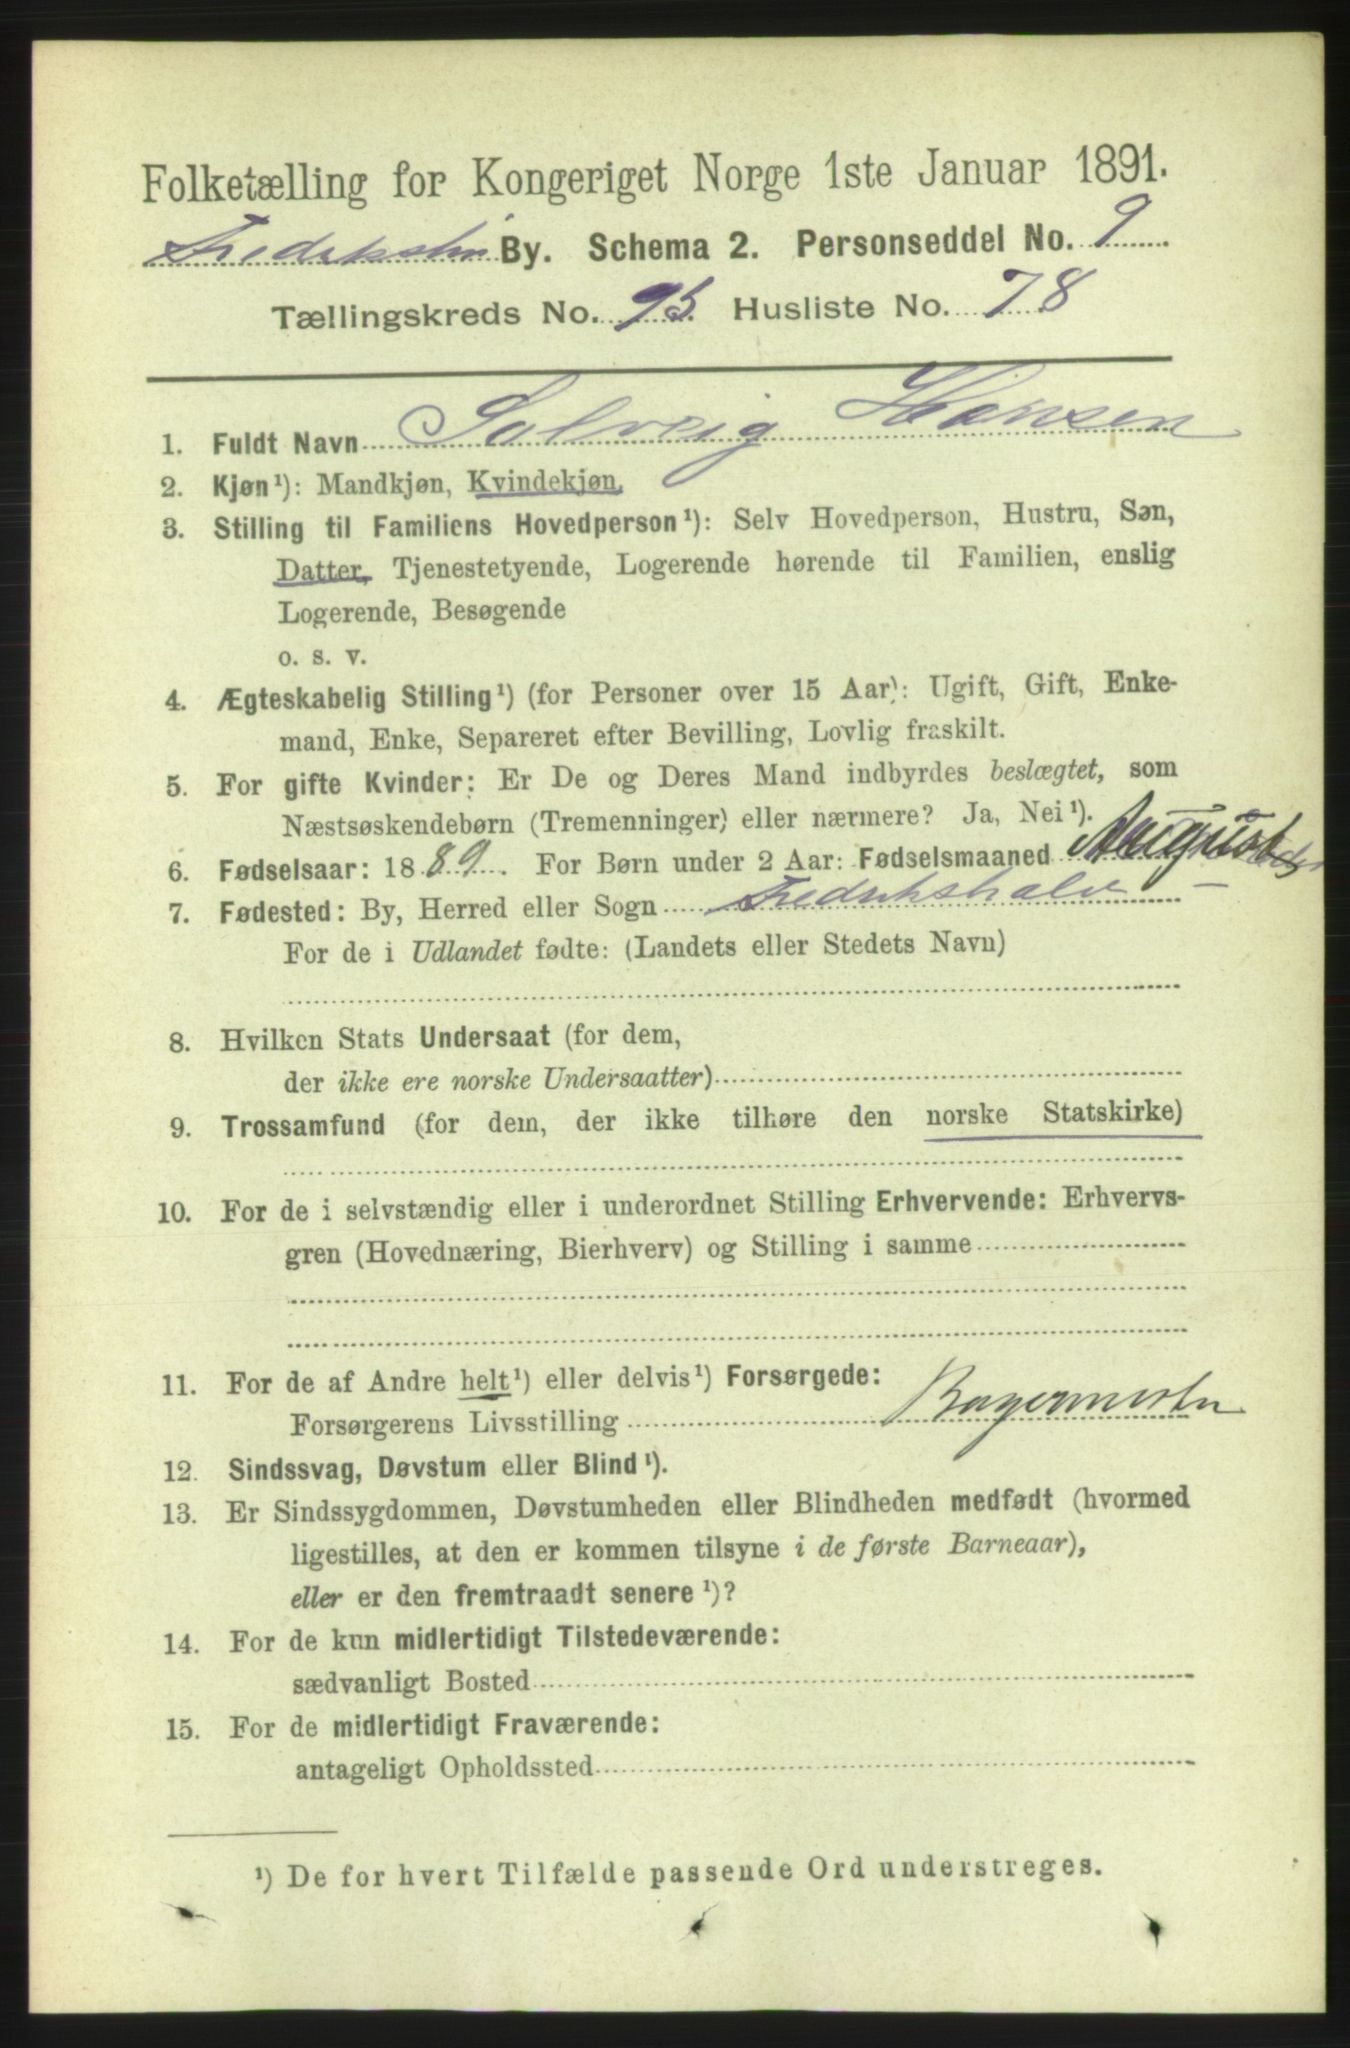 Folketælling for Kongeriget Norge 1ste Januar 1891.
By. Schema 2. Personseddel No. 9
Tællingskreds No. 95 Husliste No. 78
1. Fuldt Navn Solveig Hansen
2. Kjøn¹): Mandkjøn, Kvindekjøn.
3. Stilling til Familiens Hovedperson¹): Selv Hovedperson, Hustru, Søn,
Datter, Tjenestetyende, Logerende hørende til Familien, enslig
Logerende, Besøgende
o. s. v.
4. Ægteskabelig Stilling¹) (for Personer over 15 Aar): Ugift, Gift, Enke-
mand, Enke, Separeret efter Bevilling, Lovlig fraskilt.
5. For gifte Kvinder: Er De og Deres Mand indbyrdes beslægtet, som
Næstsøskendebørn (Tremenninger) eller nærmere? Ja, Nei¹).
6. Fødselsaar: 1889. For Børn under 2 Aar: Fødselsmaaned August
7. Fødested: By, Herred eller Sogn Fredrikshald
For de i Udlandet fødte: (Landets eller Stedets Navn)
8. Hvilken Stats Undersaat (for dem,
der ikke ere norske Undersaatter)
9. Trossamfund (for dem, der ikke tilhøre den norske Statskirke)
10. For de i selvstændig eller i underordnet Stilling Erhvervende: Erhvervs-
gren (Hovednæring, Bierhverv) og Stilling i samme
11. For de af Andre helt¹) eller delvis¹) Forsørgede:
Forsørgerens Livsstilling Bagermester
12. Sindssvag, Døvstum eller Blind¹).
13. Er Sindssygdommen, Døvstumheden eller Blindheden medfødt (hvormed
ligestilles, at den er kommen tilsyne i de første Barneaar),
eller er den fremtraadt senere¹)?
14. For de kun midlertidigt Tilstedeværende:
sædvanligt Bosted
15. For de midlertidigt Fraværende:
antageligt Opholdssted
¹) De for hvert Tilfælde passende Ord understreges.